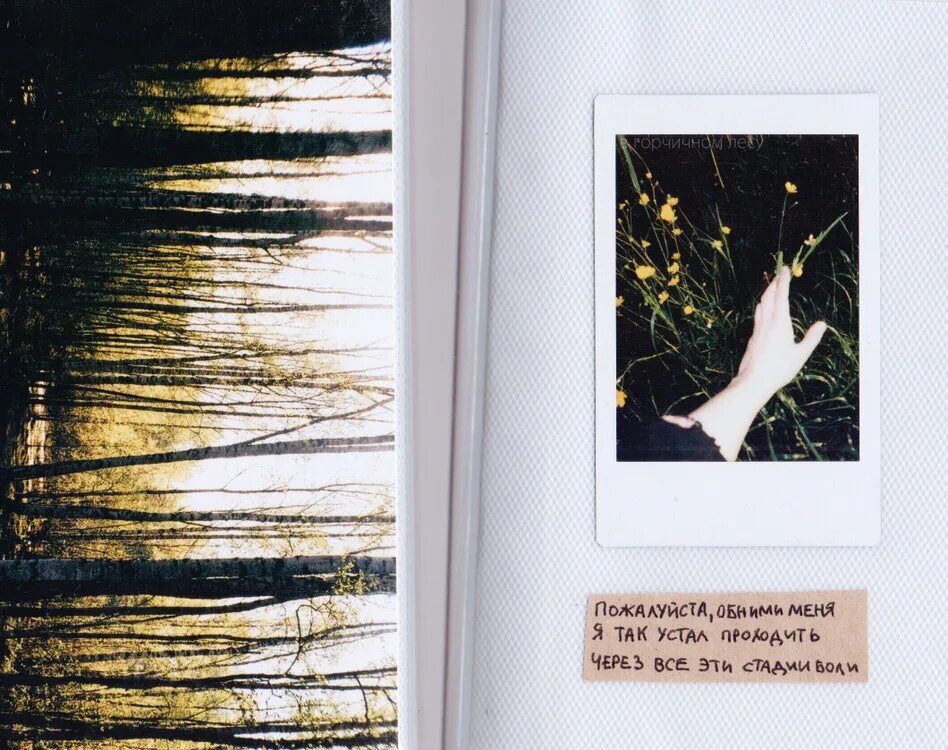 в горчичном лесу
ПОЖАЛУЙСТА, ОБНИМИ МЕНЯ
Я ТАК УСТАЛ ПРОХОДИТЬ
ЧЕРЕЗ ВСЕ ЭТИ СТАДИИ БОЛИ